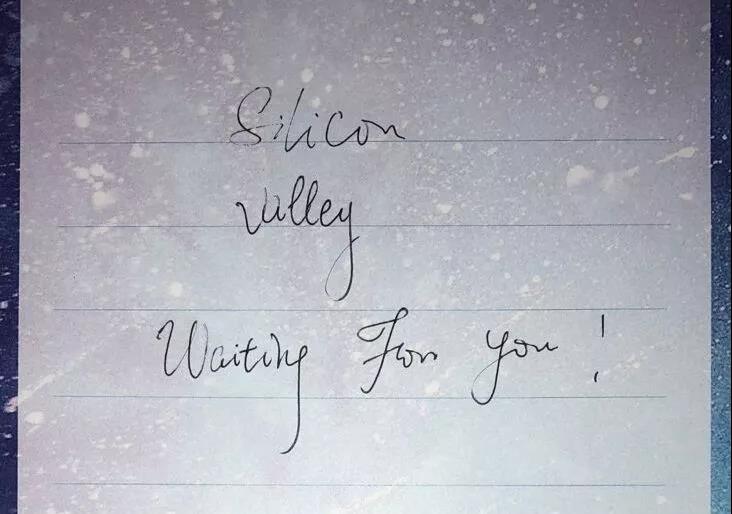 Silicon
Valley
Waiting For you !